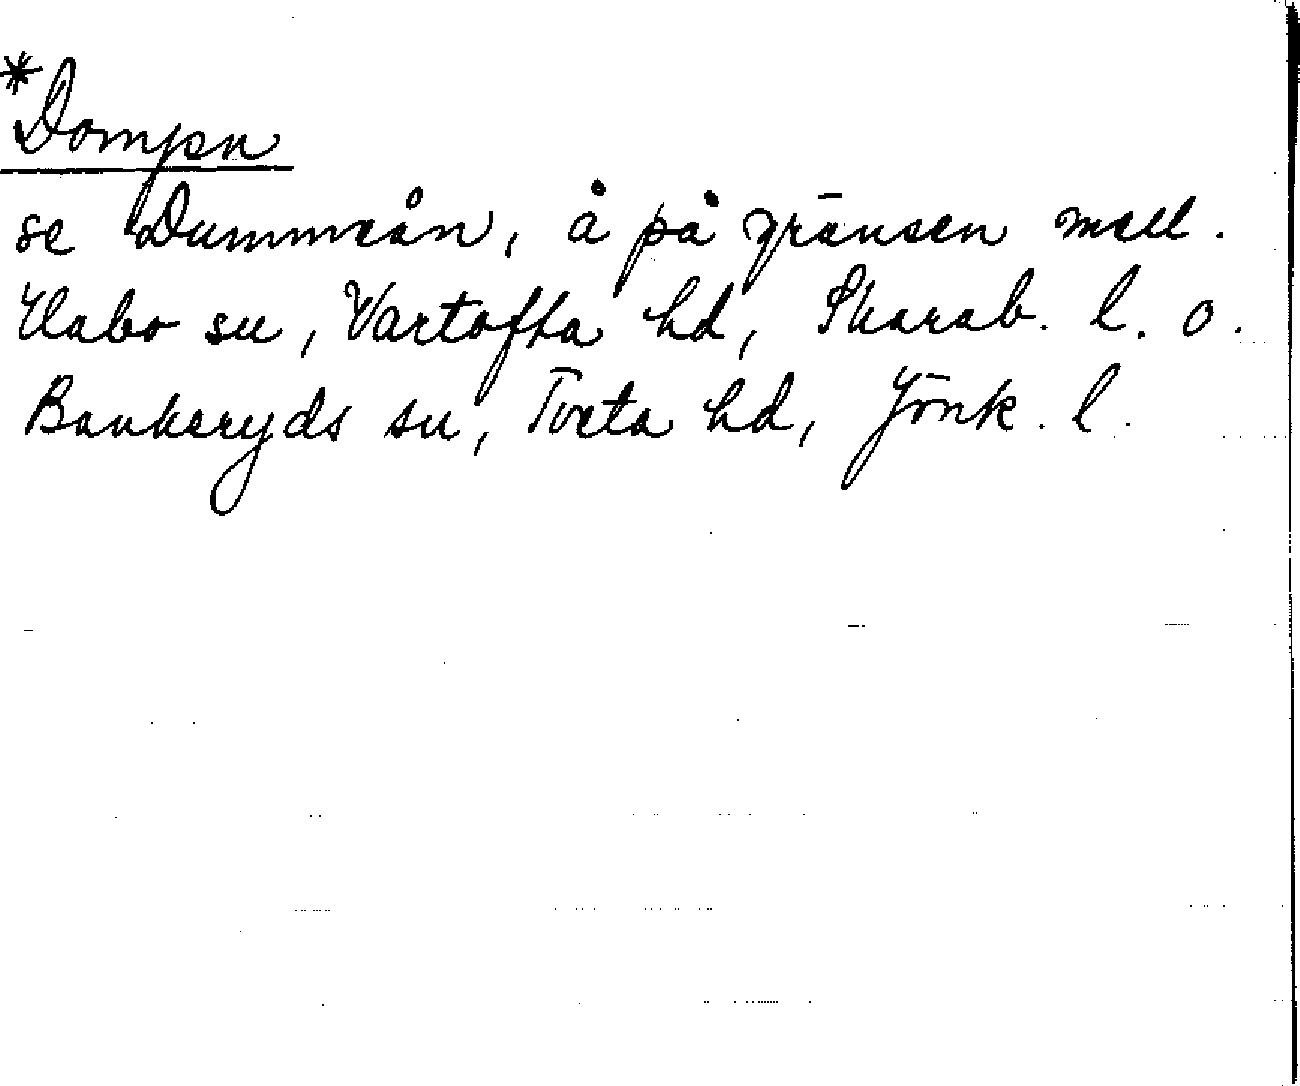 *Dompn
se Dummeån, å på gränsen mell.
Habo sn, Vartofta hd, Skarab. l. o.
Bankeryds sn, Tveta hd, Jönk. l.